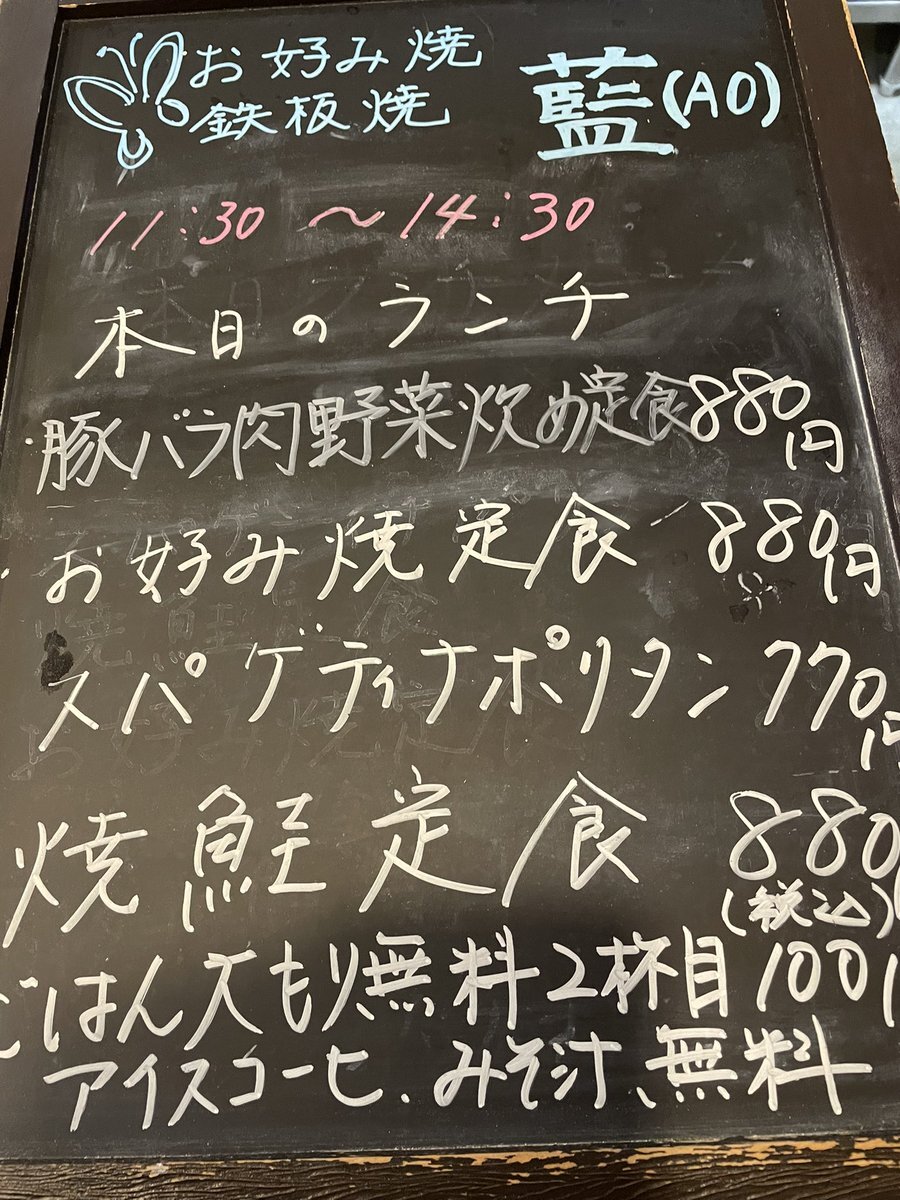 お好み焼
鉄板焼 藍(AO)
11:30 〜 14:30
本日のランチ
豚バラ肉野菜炊め定食880円
お好み焼定食 880円
スパゲティナポリタン770円
焼鮭定食 880
(税込)
ごはん大もり無料2杯目100円
アイスコーヒ、みそ汁、無料